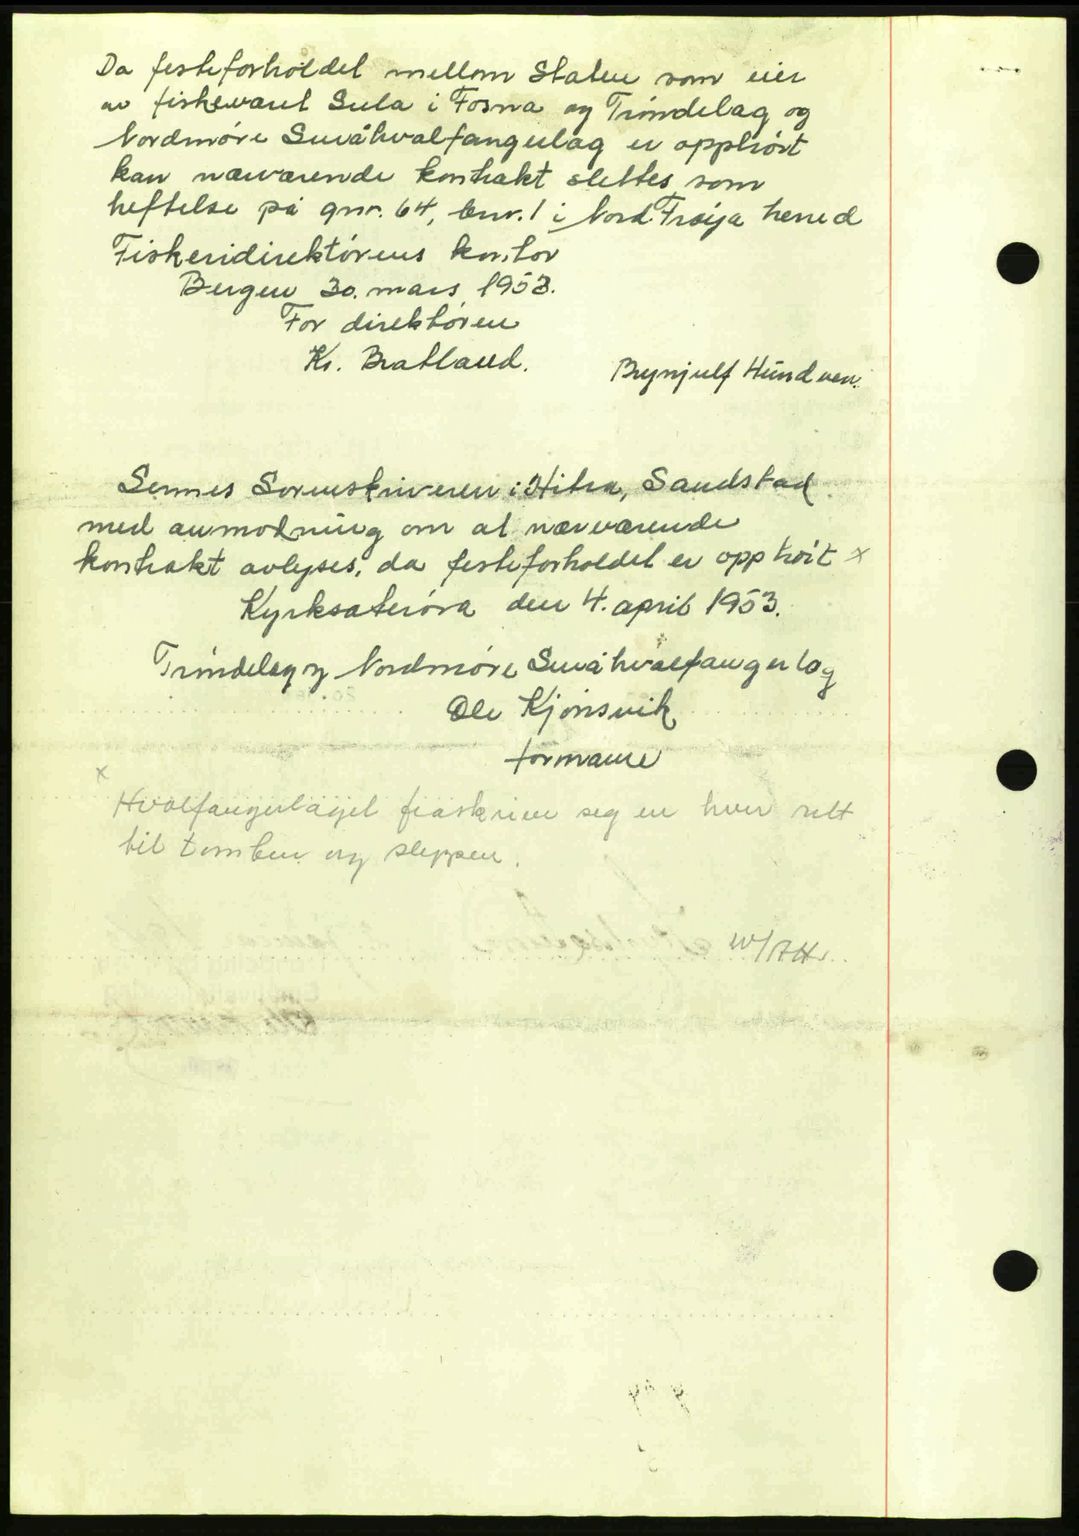 Da festeforholdet mellom Staten som eier
av fiskeværet Sula i Fosna og Trøndelag og
Nordmøre Småhvalfangerlag er opphørt
kan nærværende kontrakt slettes som
heftelse på gnr. 64, bnr. 1 i Nord Frøya herred
Fiskeridirektørens kontor
Bergen 30. mars 1953.
For direktøren
Kr. Bratland.
Brynjulf Hundven.
Sennes Sorenskriveren i Hitra, Sandstad
med anmodning om at nærværende
kontrakt avlyses, da festeforholdet er opphørt x
Kyrksæterøra den 4. april 1953.
Trøndelag og Nordmøre Småhvalfangerlag
Ole Kjønsvik
formann
x
Hvalfangerlaget fraskriver seg en hver rett
til tomten og slippen.